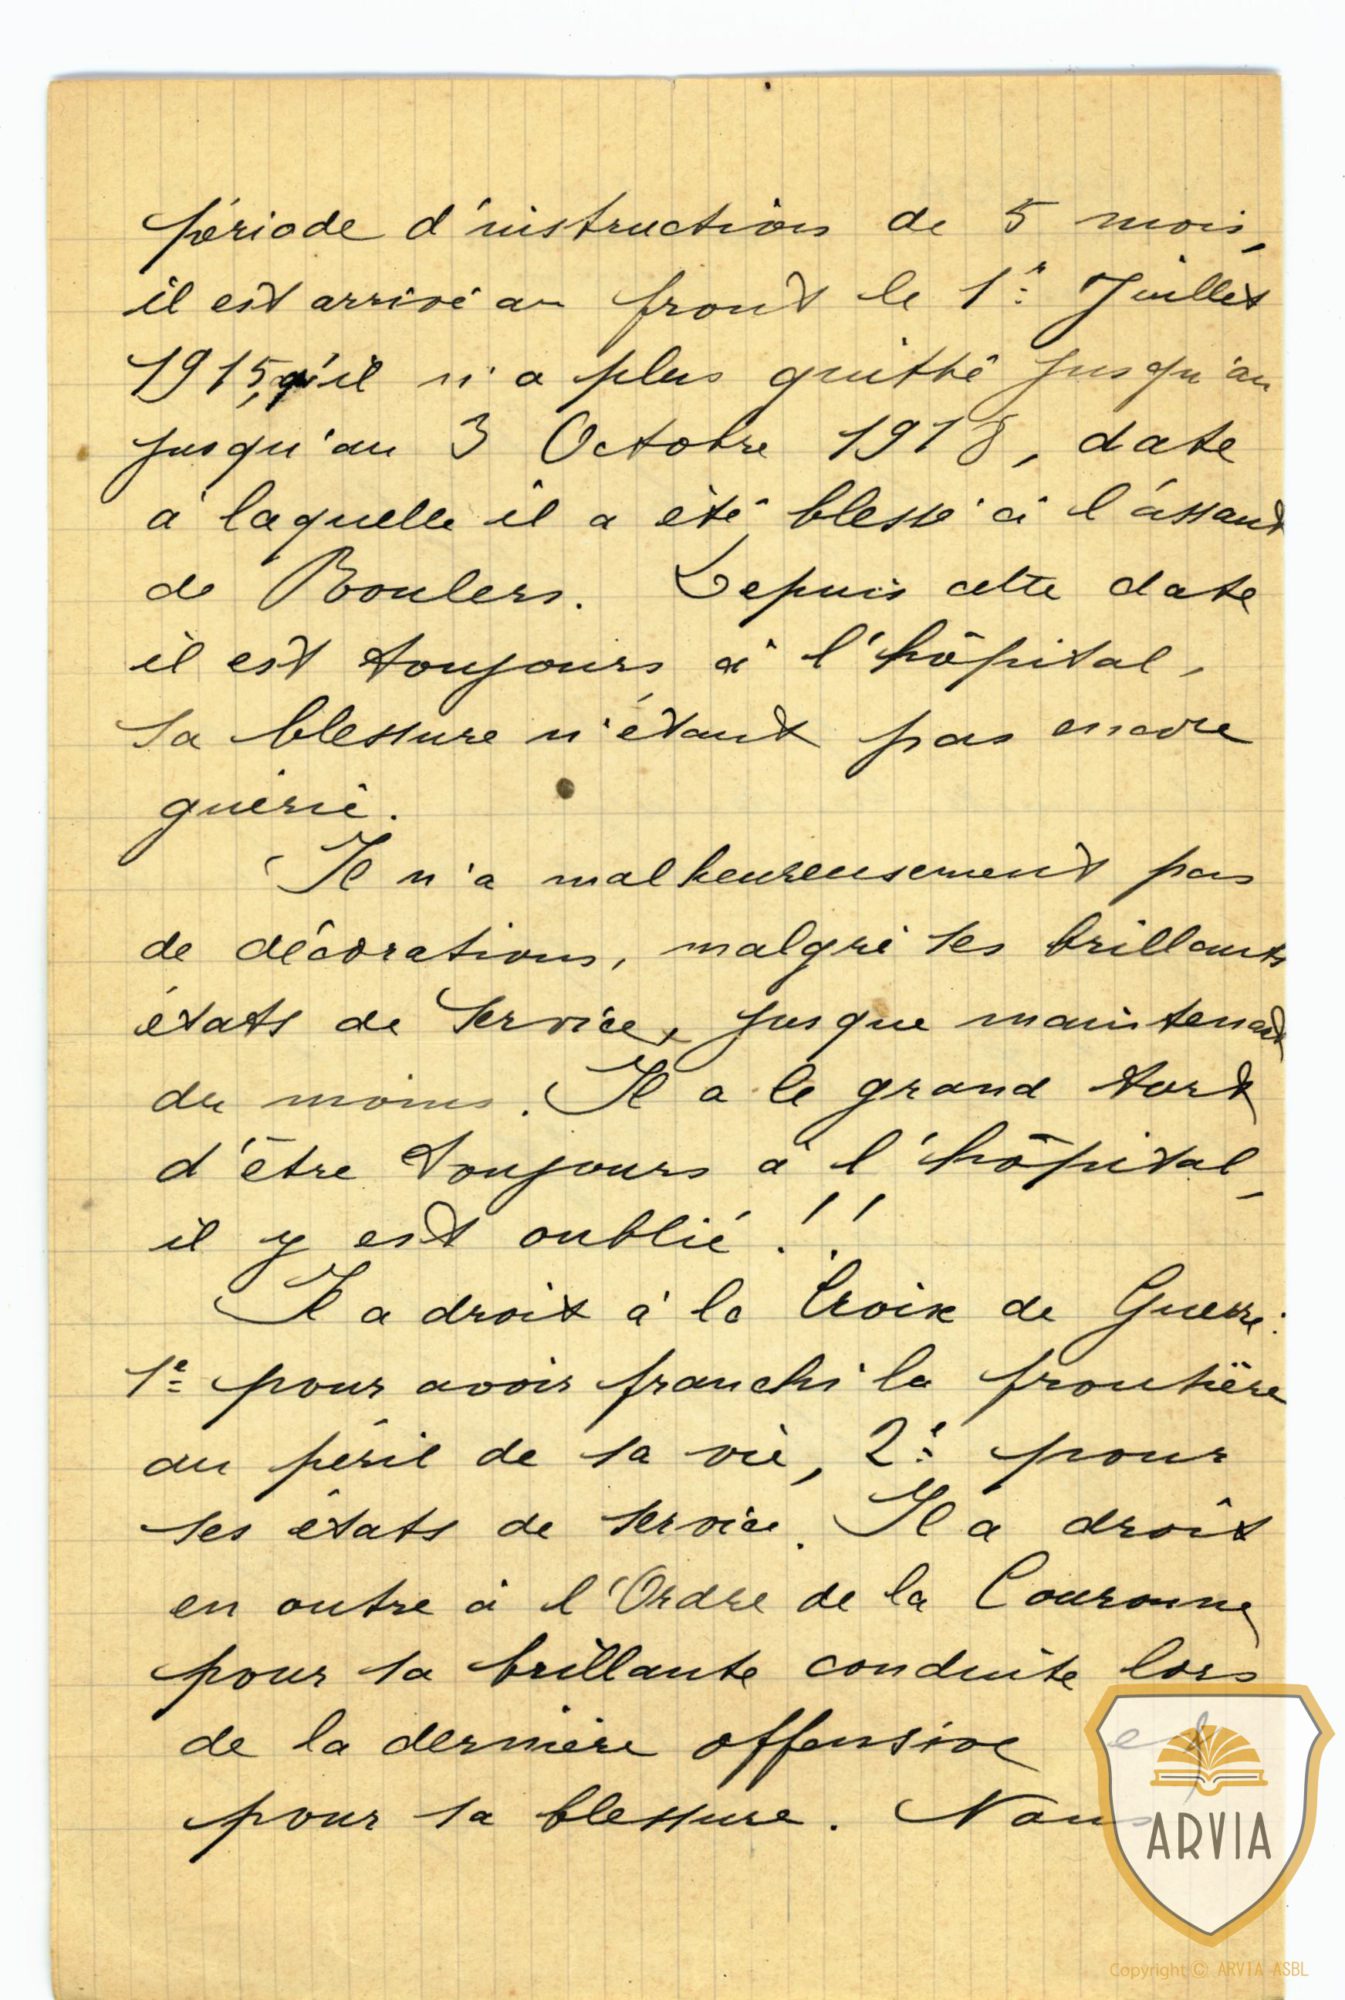 période d'instruction de 5 mois,
il est arrivé au front le 1r Juillet
1915, qu'il n'a plus quitté jusqu'au
jusqu'au 3 Octobre 1918, date
à laquelle il a été blessé à l'assaut
de Roulers. Depuis cette date
il est toujours à l'hôpital,
sa blessure n'étant pas encore
guérie.
Il n'a malheureusement pas
de décorations, malgré ses brillants
états de service, jusque maintenant
du moins. Il a le grand tort
d'être toujours à l'hôpital,
il y est oublié !!
Il a droit à la Croix de Guerre :
1e pour avoir franchi la frontière
au péril de sa vie, 2e pour
ses états de service. Il a droit
en outre à l'Ordre de la Couronne
pour sa brillante conduite lors
de la dernière offensive et
pour sa blessure. Nous
ARVIA
Copyright © ARVIA ASBL